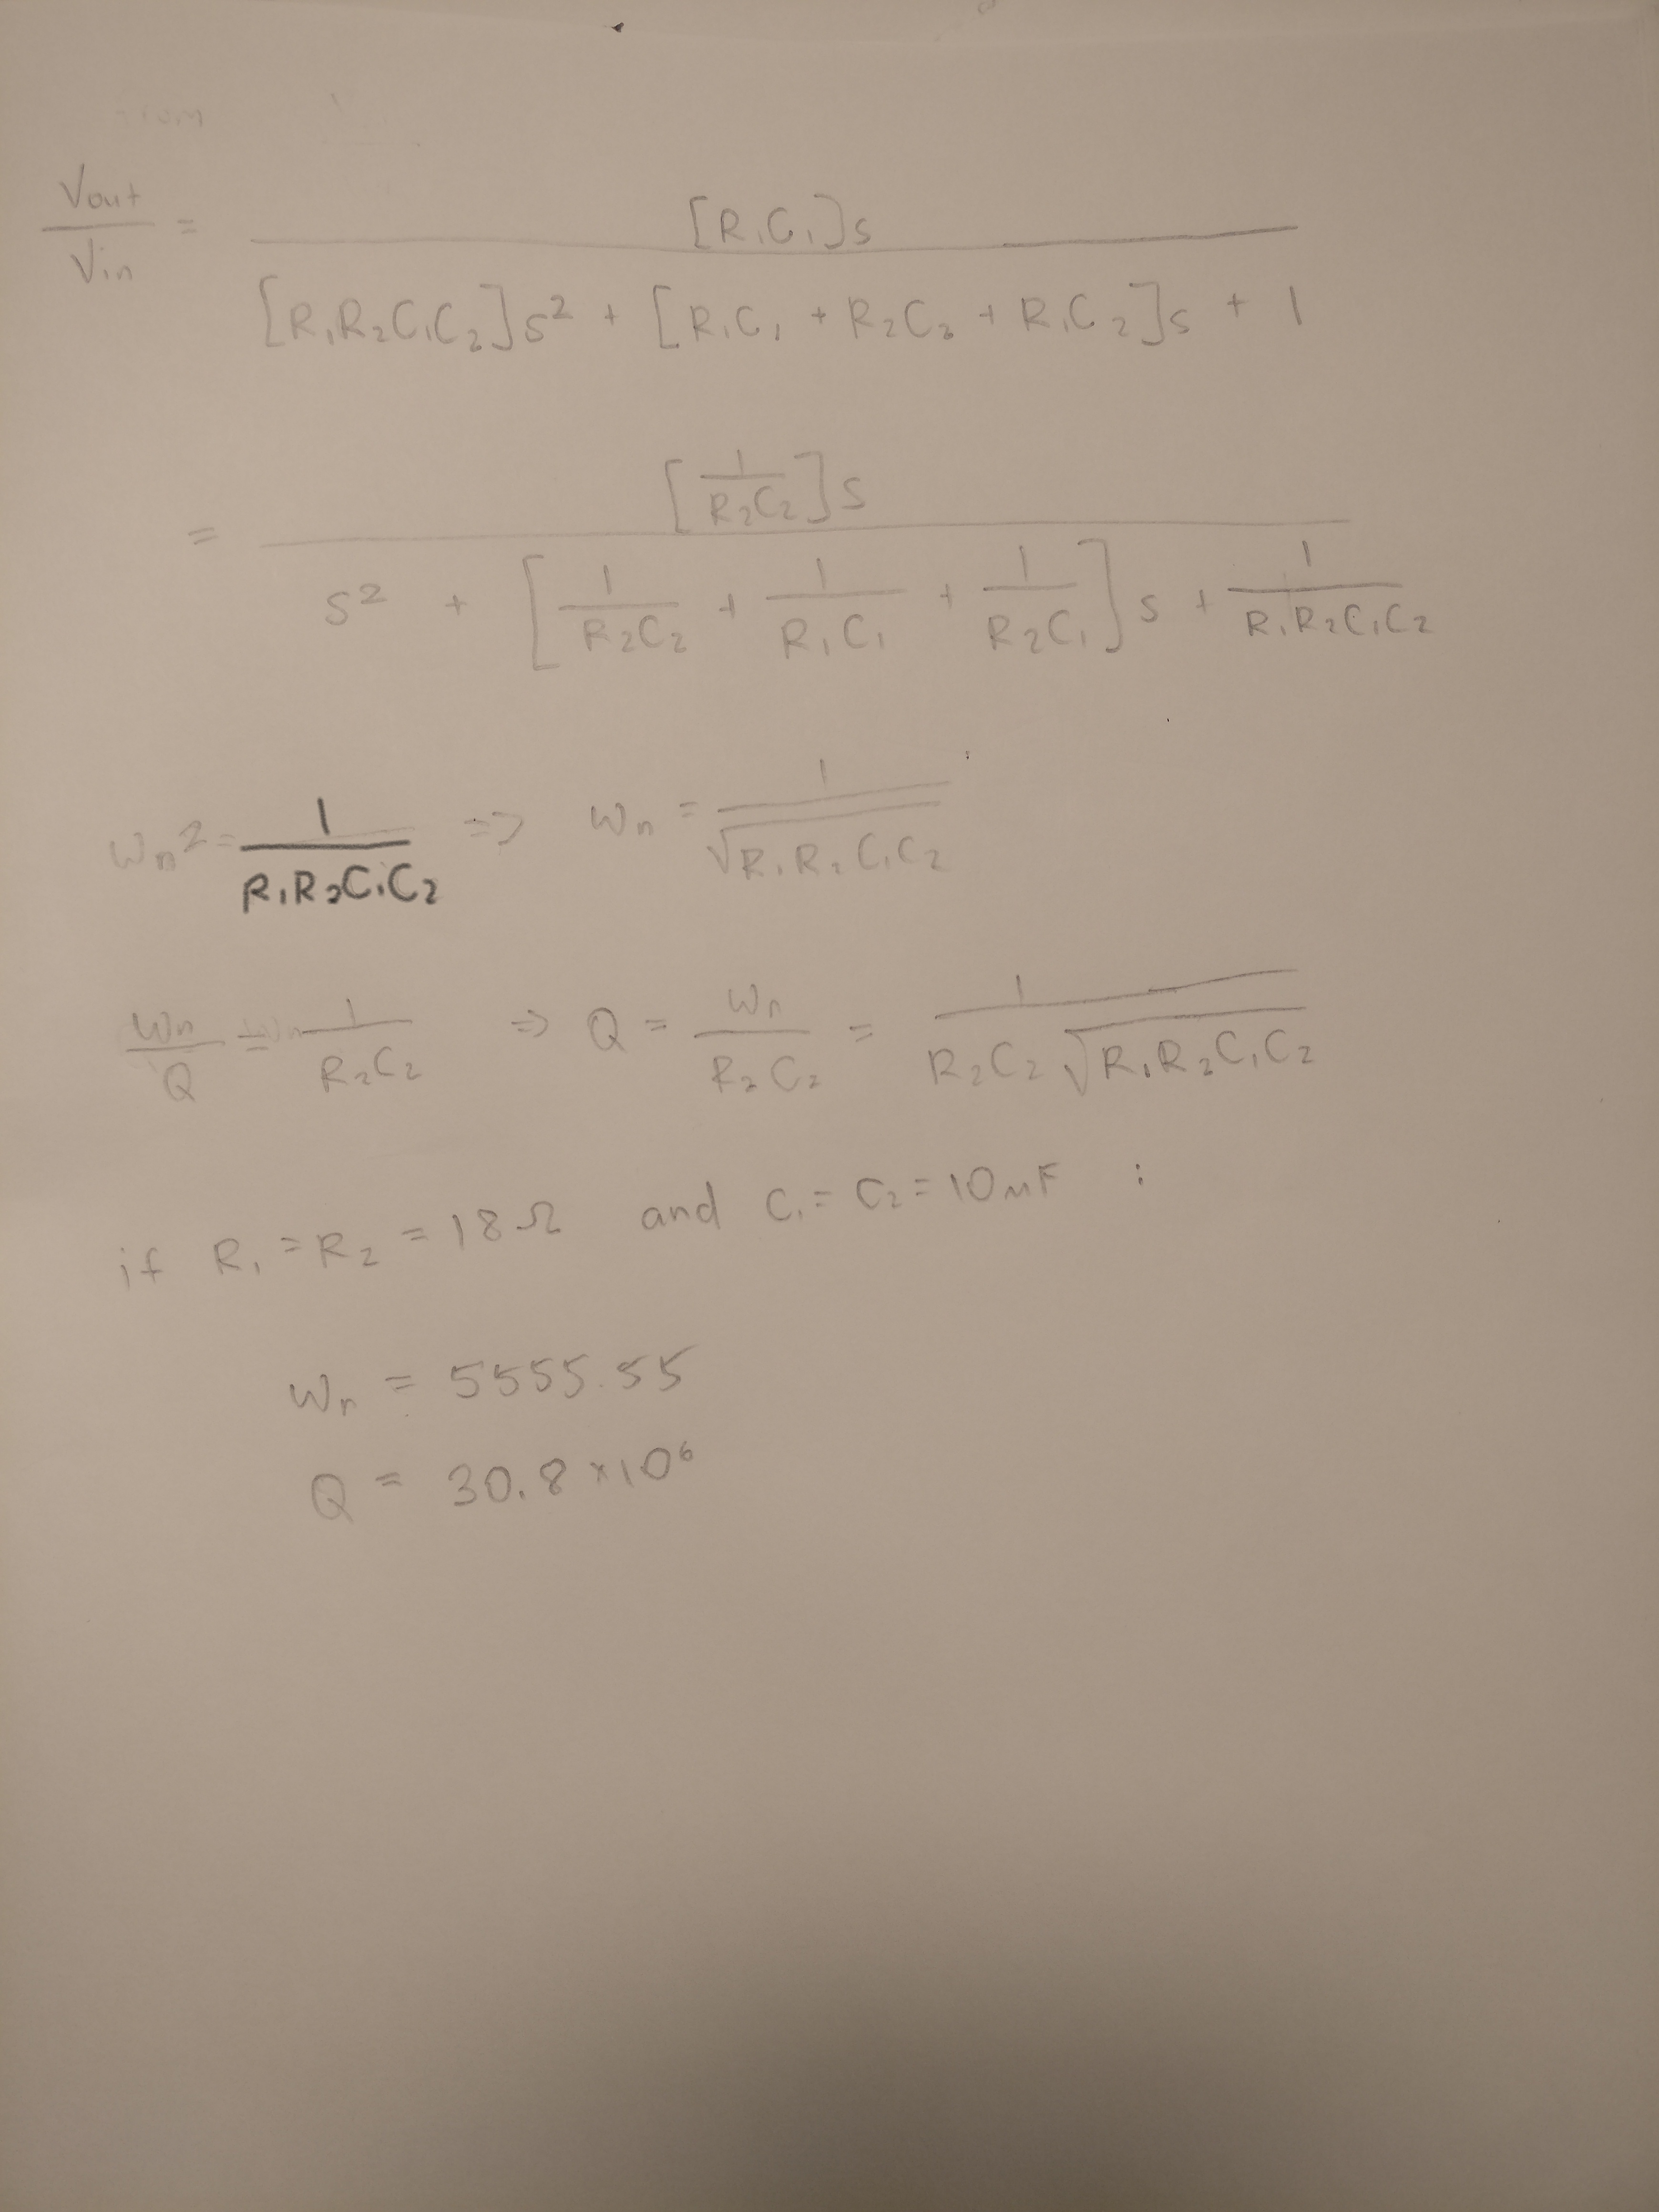 from
Vout/Vin = [R₁C₁]s / ([R₁R₂C₁C₂]s² + [R₁C₁ + R₂C₂ + R₁C₂]s + 1)
= [1/(R₂C₂)]s / (s² + [1/(R₂C₂) + 1/(R₁C₁) + 1/(R₂C₁)]s + 1/(R₁R₂C₁C₂))
Wn² = 1/(R₁R₂C₁C₂) => Wn = 1/√(R₁R₂C₁C₂)
Wn/Q = 1/(R₂C₂) => Q = Wn/(R₂C₂) = 1/(R₂C₂√(R₁R₂C₁C₂))
if R₁ = R₂ = 18Ω and C₁ = C₂ = 10μF :
Wn = 5555.55
Q = 30.8 × 10⁶